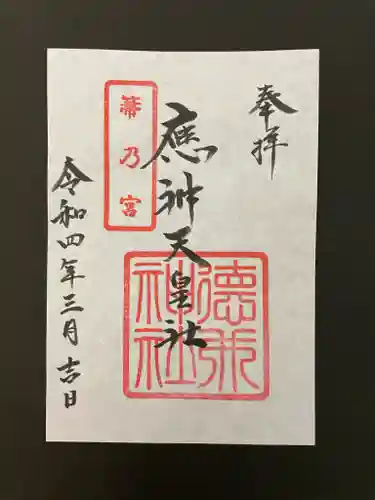 奉拝
應神天皇社
德永
神社
幕乃宮
令和四年三月吉日